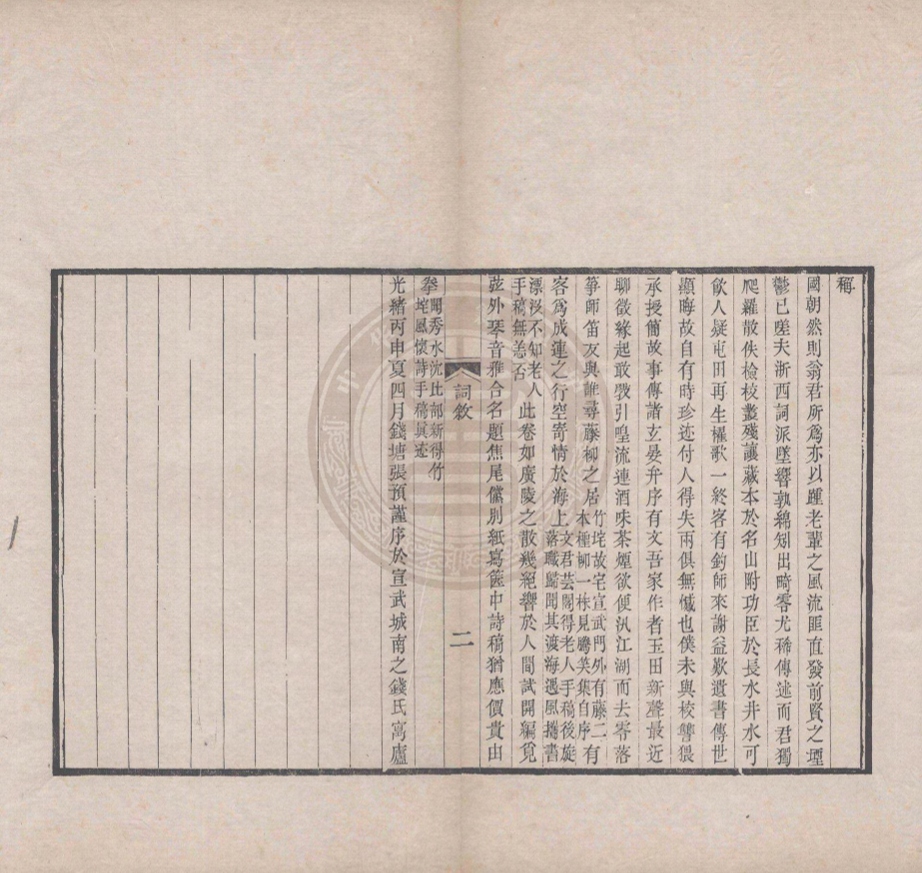 稱
國朝然則翁君所爲亦以踵老輩之風流匪直發前賢之堙
鬱已嗟夫浙西詞派墜響孰綿矧出畸零尤稀傳述而君獨
爬羅散佚檢校叢殘讓藏本於名山附功臣於長水井水可
飲人疑屯田再生櫂歌一終客有鈞師來謝益歎遺書傳世
顯晦故自有時珍迹付人得失兩俱無憾也僕未與校讐猥
承授簡故事傳諸玄晏弁序有文吾家作者玉田新聲最近
聊徵緣起敢戣引喤流連酒味茶煙欲便汎江湖而去零落
箏師笛友與誰尋藤柳之居竹垞故宅宣武門外有藤二有
本檉柳一株見騰笑集自序
客爲成連之行空寄情於海上文君芸閣得老人手稿後旋
落職歸聞其渡海遇風攜書
漂沒不知老人
手稿無恙否
此卷如廣陵之散幾絕響於人間試開編覓
弦外琴音雅合名題焦尾儻別紙寫篋中詩稿猶應價貴由
拳聞秀水沈比部新得竹
垞風懷詩手稿眞迹
光緒丙申夏四月錢塘張預謹序於宣武城南之錢氏寓廬
詞敘
二